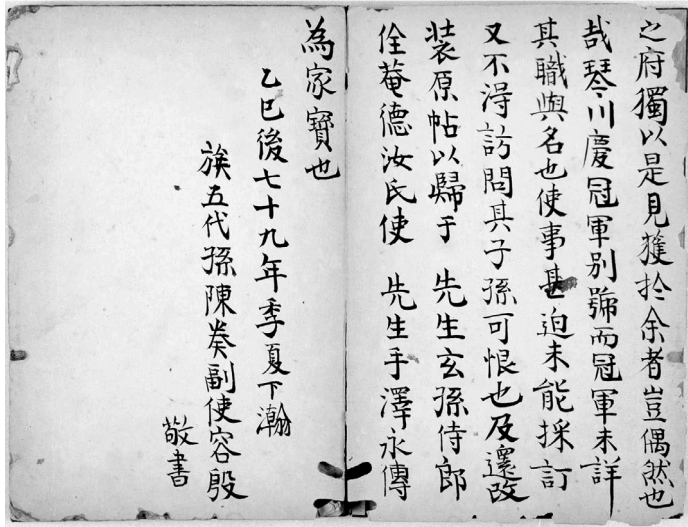 之府獨以是見獲於余者豈偶然也
哉琴川慶冠軍别號而冠軍未詳
其職與名也使事甚迫未能採訂
又不淂訪問其子孫可恨也及還改
装原帖以歸于 先生玄孫侍郎
佺菴德汝氏使 先生手澤永傳
為家寶也
乙巳後七十九年季夏下瀚
族五代孫陳奏副使容殷
敬書